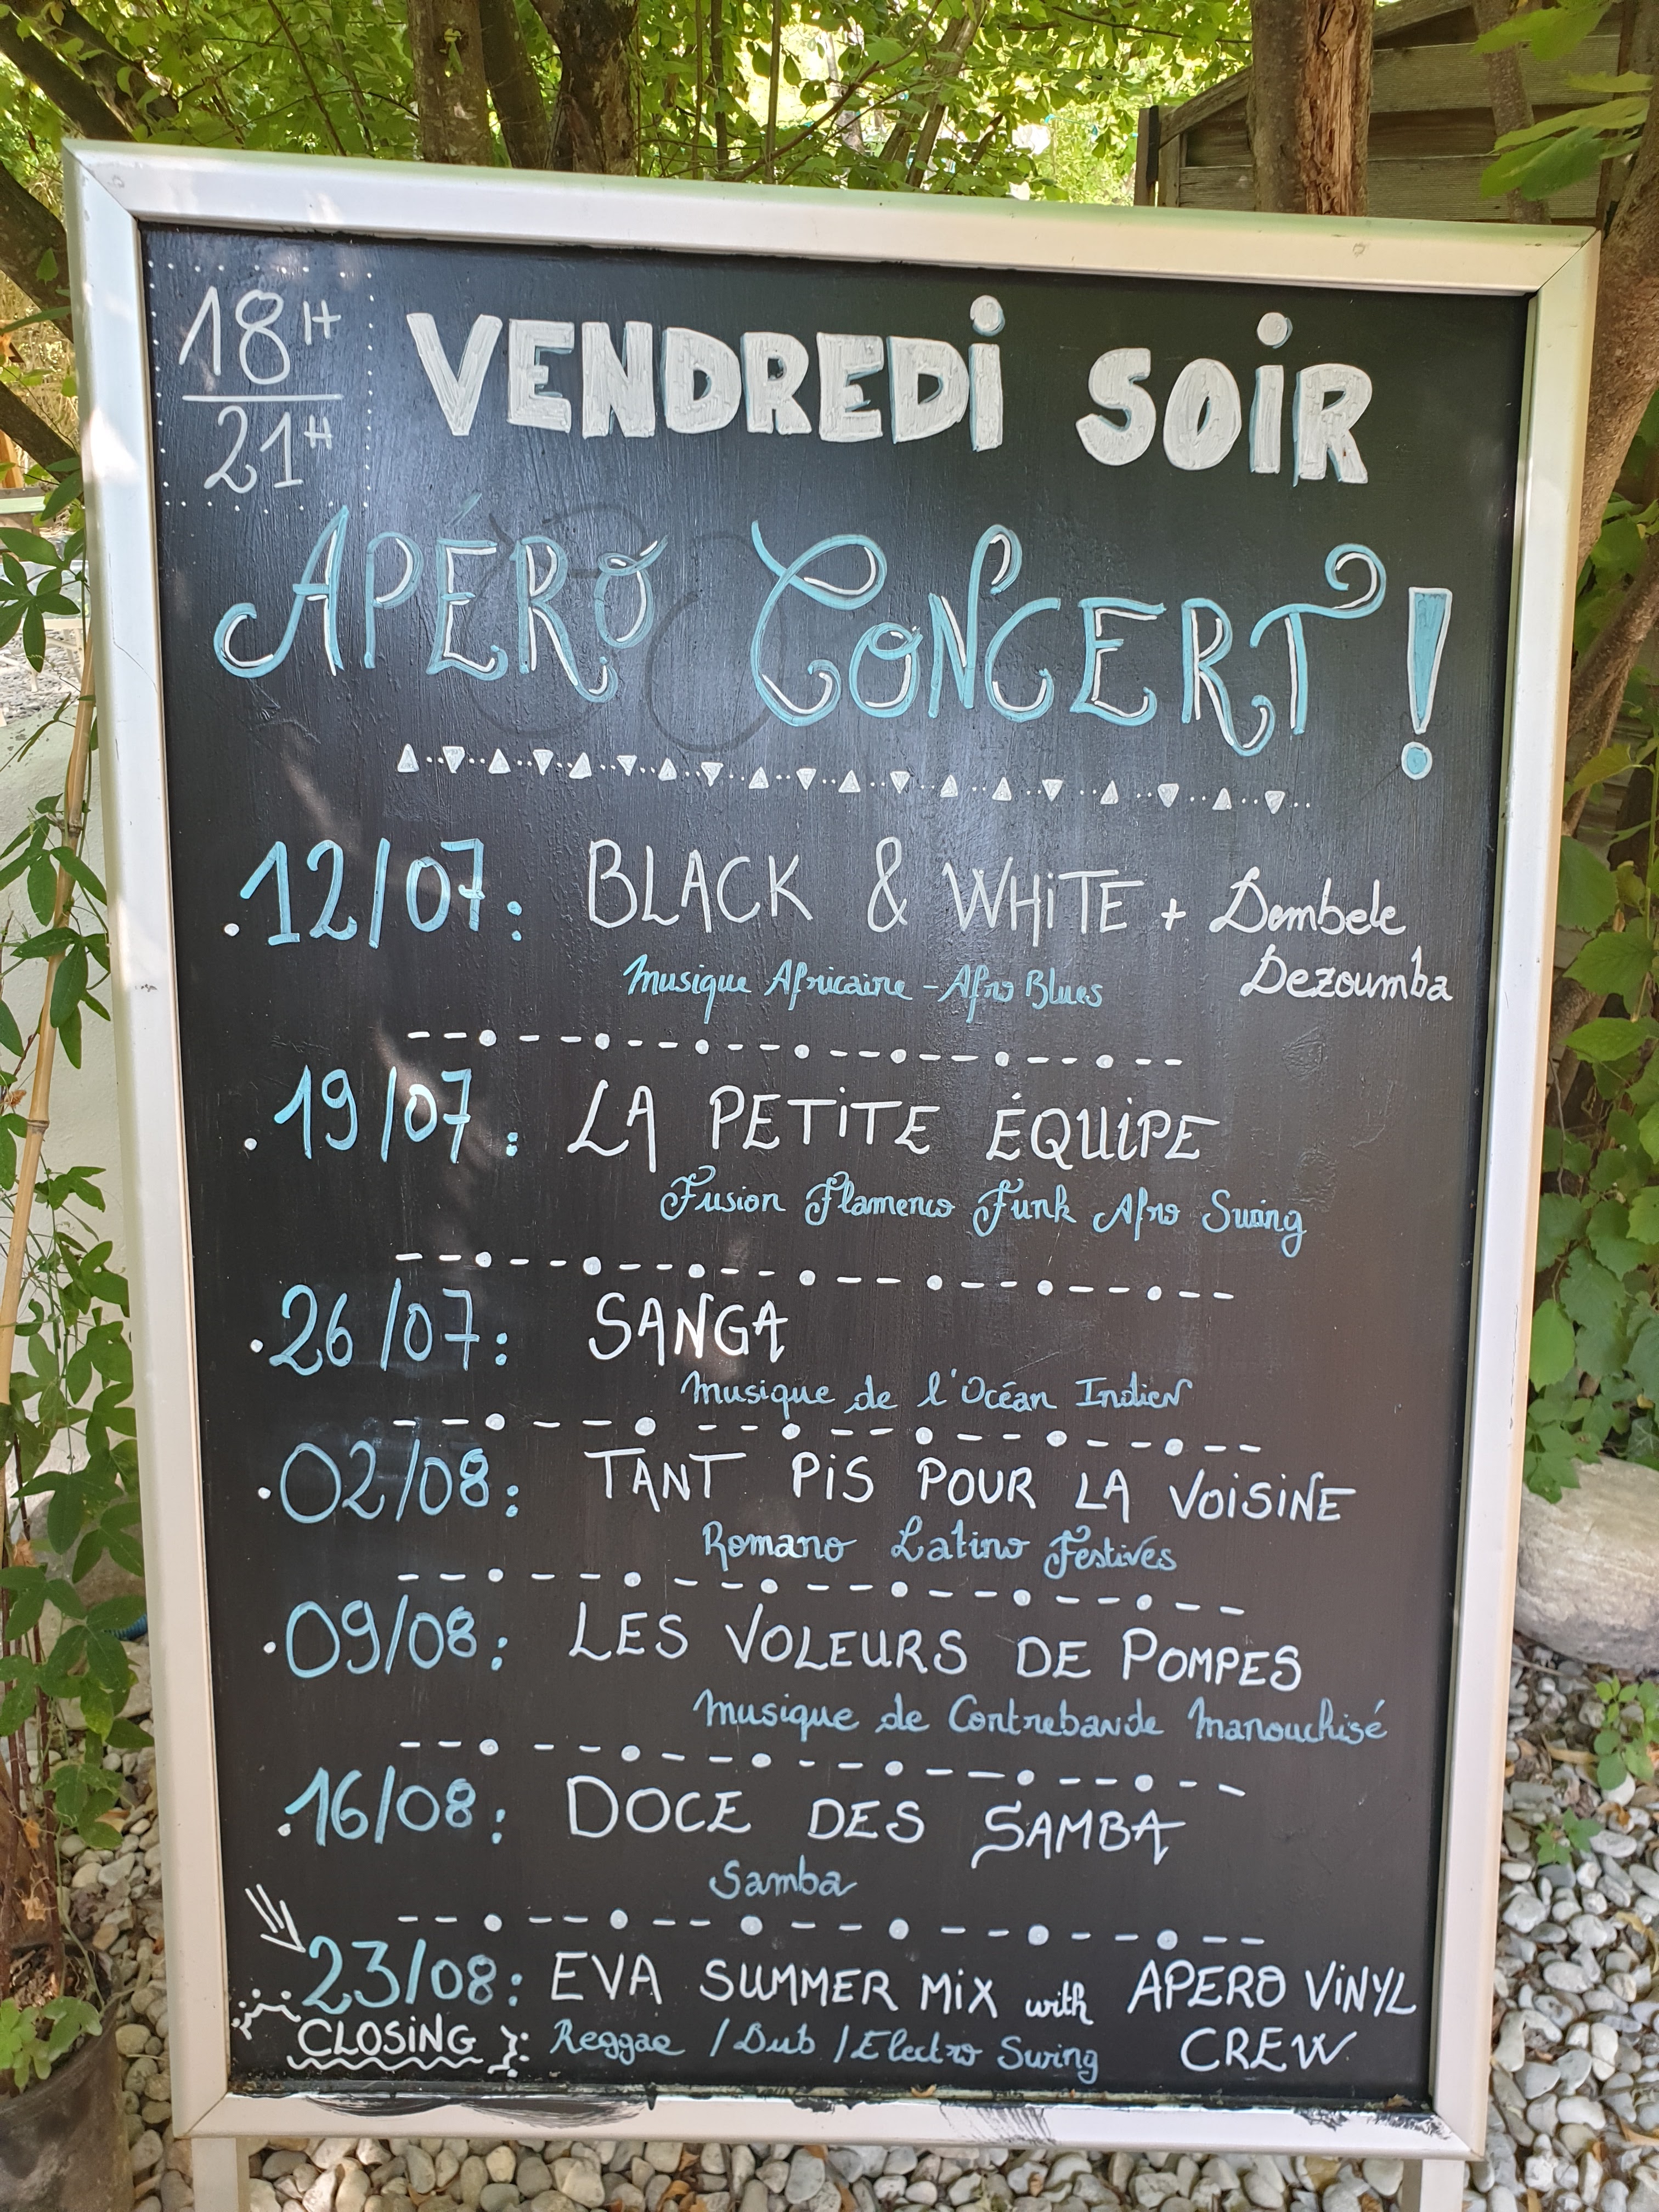 18H
21H
VENDREDI SOIR
APÉRO CONCERT !
.12/07: BLACK & WHITE + Dembele
Dezoumba
Musique Africaine - Afro Blues
.19/07: LA PETITE ÉQUIPE
Fusion Flamenco Funk Afro Swing
.26/07: SANGA
Musique de l'Océan Indien
.02/08: TANT PIS POUR LA VOISINE
Romano Latino Festives
.09/08: LES VOLEURS DE POMPES
Musique de Contrebande Manouchisé
.16/08: DOCE DES SAMBA
Samba
23/08: EVA SUMMER MIX with APERO VINYL
CLOSING Reggae / Dub / Electro Swing CREW